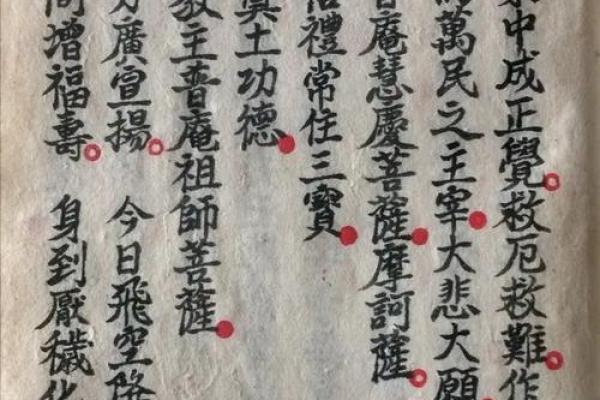 中成正覺救厄救難作
萬民之主宰大悲大願
普庵慧慶菩薩摩訶薩
信禮常住三寶
奠土功德
教主普庵祖師菩薩
方廣宣揚 今日飛空降
增福壽 身到厭穢